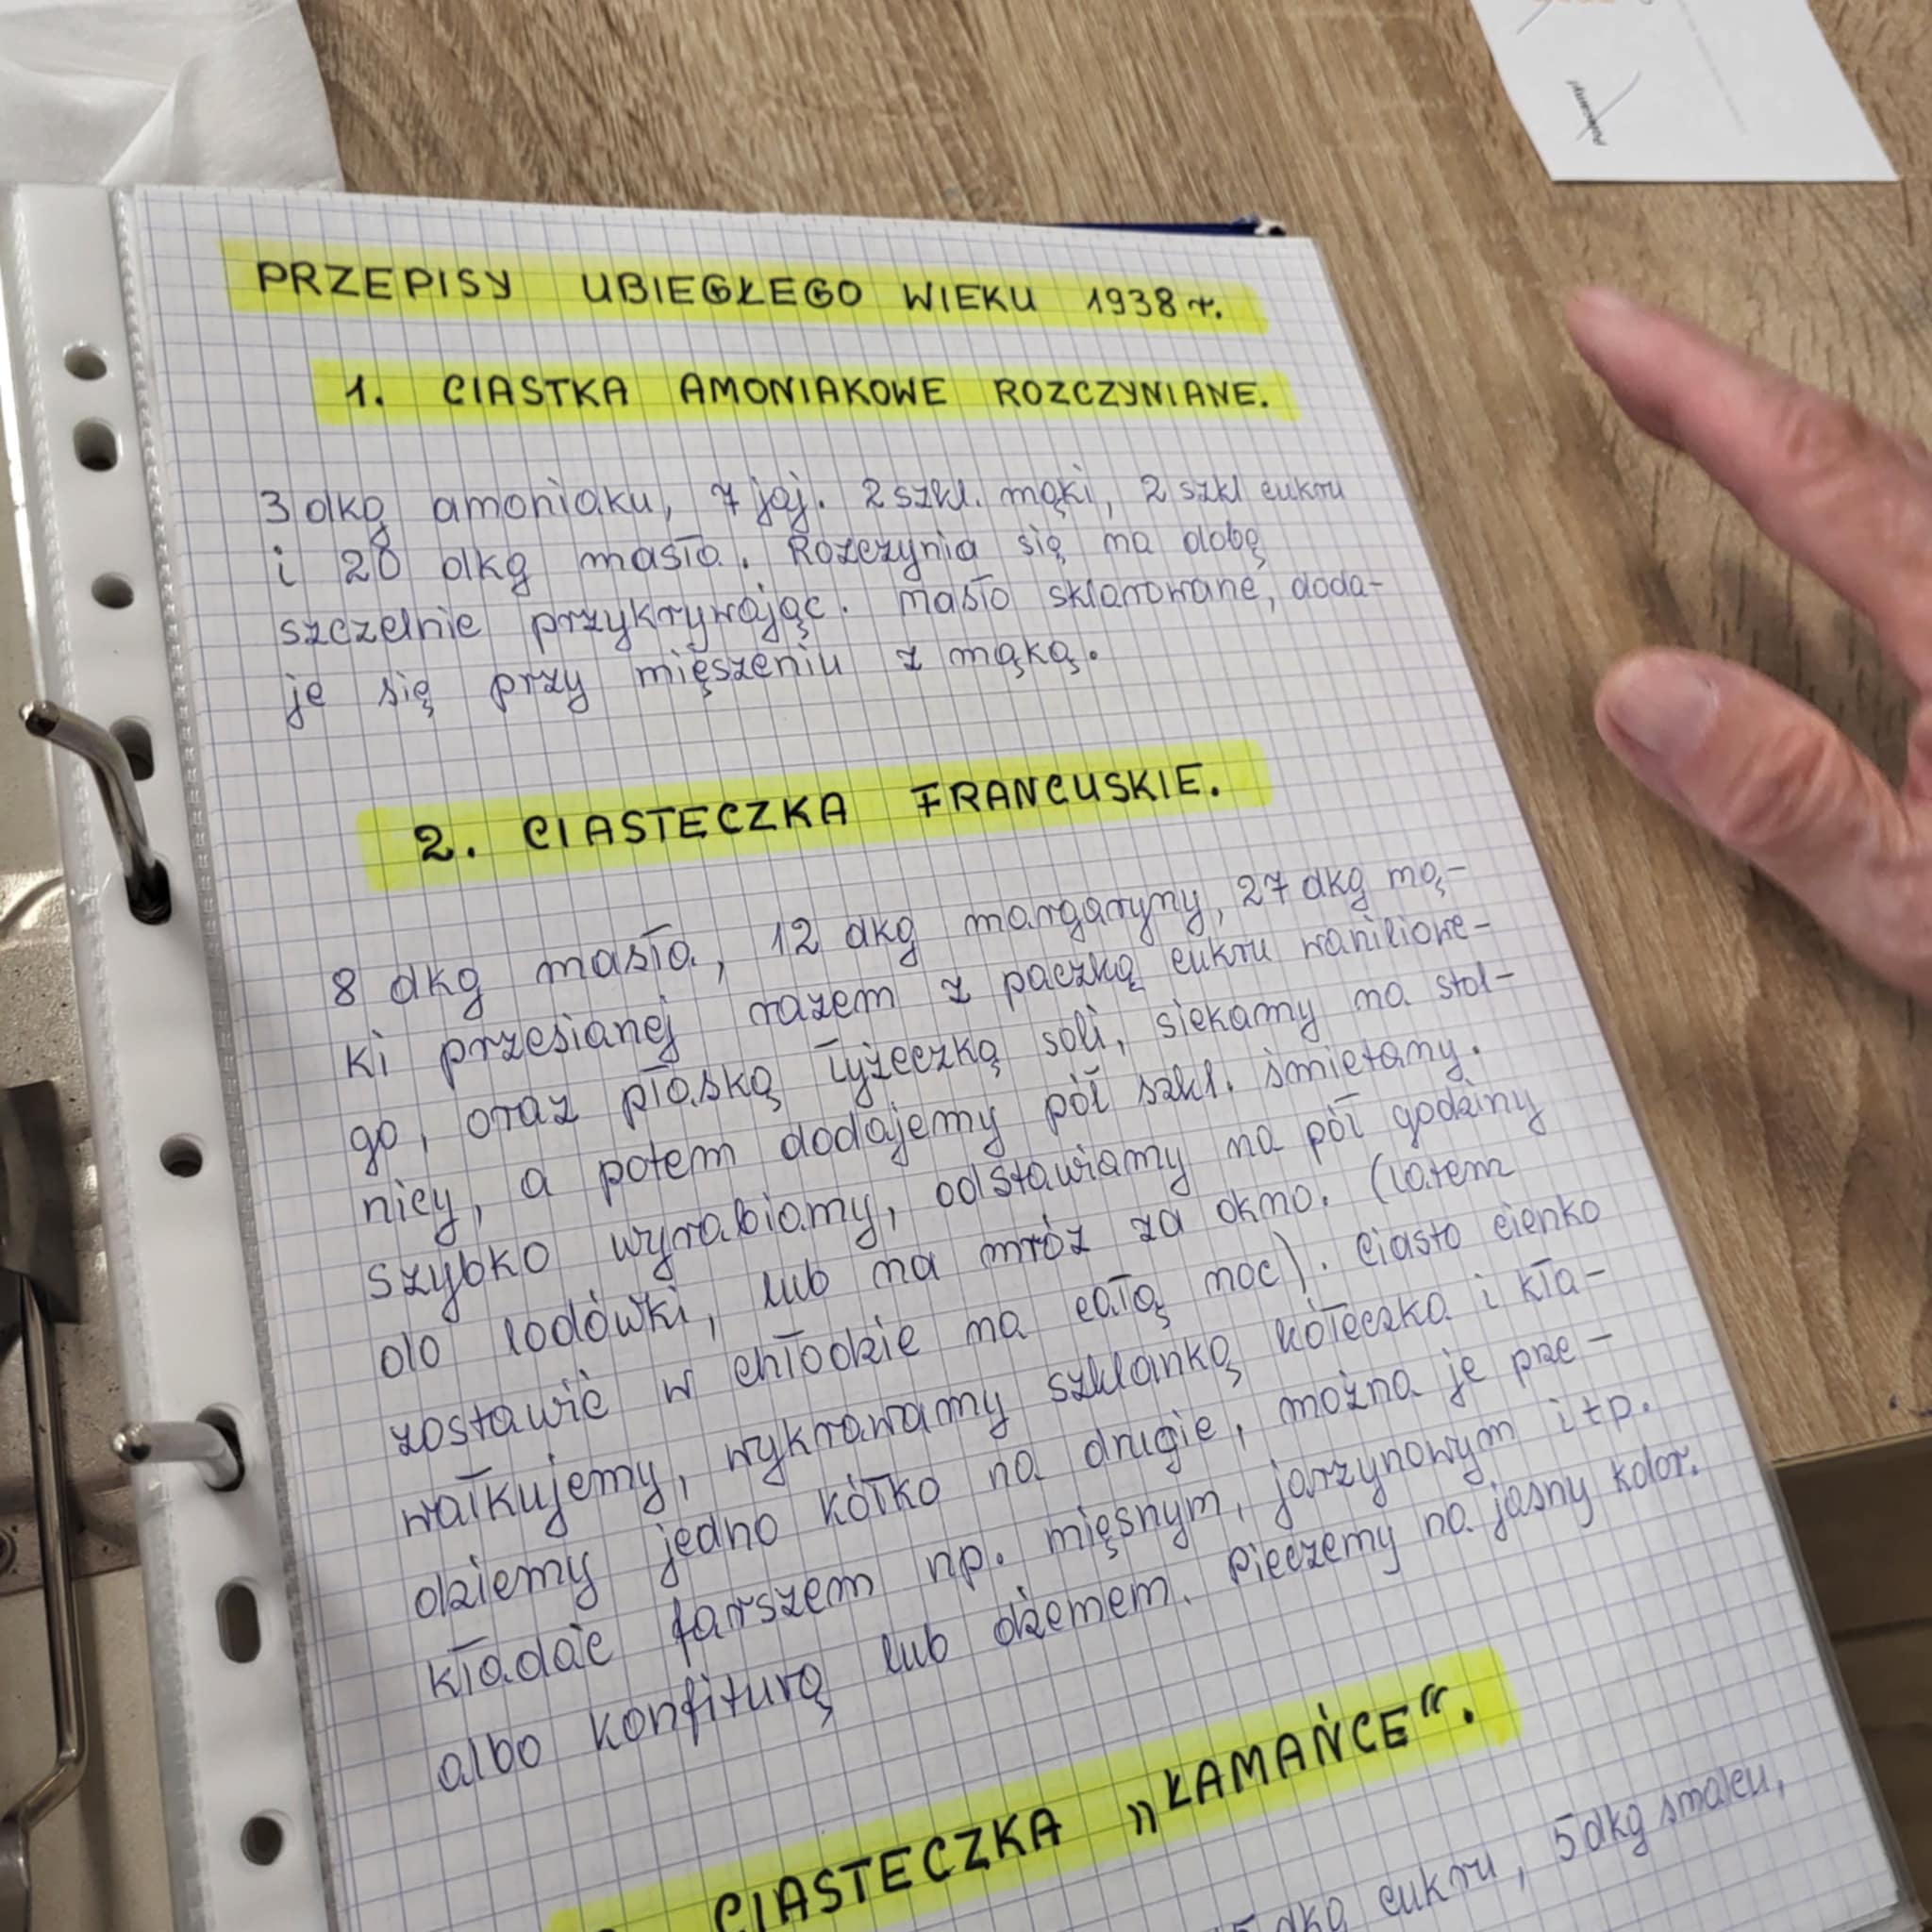 PRZEPISY UBIEGŁEGO WIEKU 1938 r.
1. CIASTKA AMONIAKOWE ROZCZYNIANE.
3 dkg amoniaku, 7 jaj. 2 szkl. mąki, 2 szkl cukru
i 20 dkg masła. Rozczynia się na dobę
szczelnie przykrywając. Masło sklarowane, doda-
je się przy mięszeniu z mąką.
2. CIASTECZKA FRANCUSKIE.
8 dkg masła, 12 dkg margaryny, 27 dkg mą-
ki przesianej razem z paczką cukru waniliowe-
go, oraz płaską łyżeczką soli, siekamy na stol-
nicy, a potem dodajemy pół szkl. śmietany.
Szybko wyrabiamy, odstawiamy na pół godziny
do lodówki, lub na mróz za okno. (Latem
zostawić w chłodzie na całą noc). Ciasto cienko
wałkujemy, wykrawamy szklanką kółeczka i kła-
dziemy jedno kółko na drugie, można je prze-
kładać farszem np. mięsnym, jarzynowym itp.
albo konfiturą lub dżemem. Pieczemy na jasny kolor.
CIASTECZKA „ŁAMAŃCE“.
dkg cukru, 5 dkg smalcu,